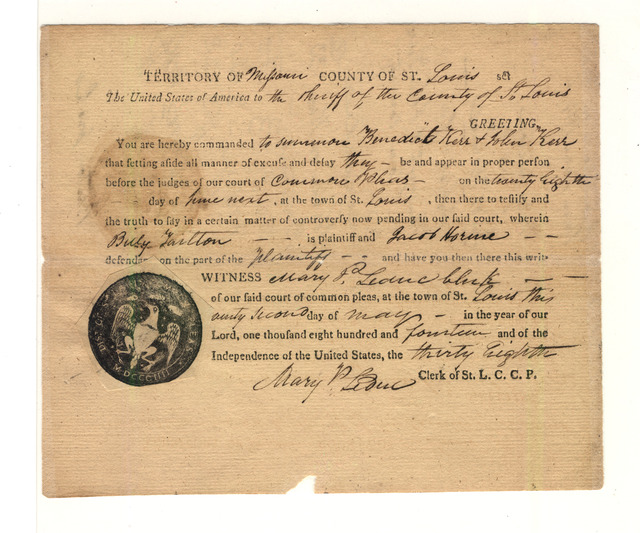 TERRITORY OF Missouri COUNTY OF ST. Louis sct
The United States of America to the Sheriff of the County of St Louis
GREETING,
You are hereby commanded to summon Benedict Kerr & John Kerr
that setting aside all manner of excuse and delay they be and appear in proper person
before the judges of our court of Common Pleas on the twenty Eighth
day of June next, at the town of St. Louis, then there to testify and
the truth to say in a certain matter of controversy now pending in our said court, wherein
Billy Tarlton is plaintiff and Jacob Horine
defendant on the part of the plaintiff and have you then there this writ
WITNESS Mary P. Leduc Clerk
of our said court of common pleas, at the town of St. Louis this
twenty second day of May in the year of our
Lord, one thousand eight hundred and fourteen and of the
Independence of the United States, the thirty Eighth
Mary P. Leduc Clerk of St. L. C. C. P.
MDCCCIIII